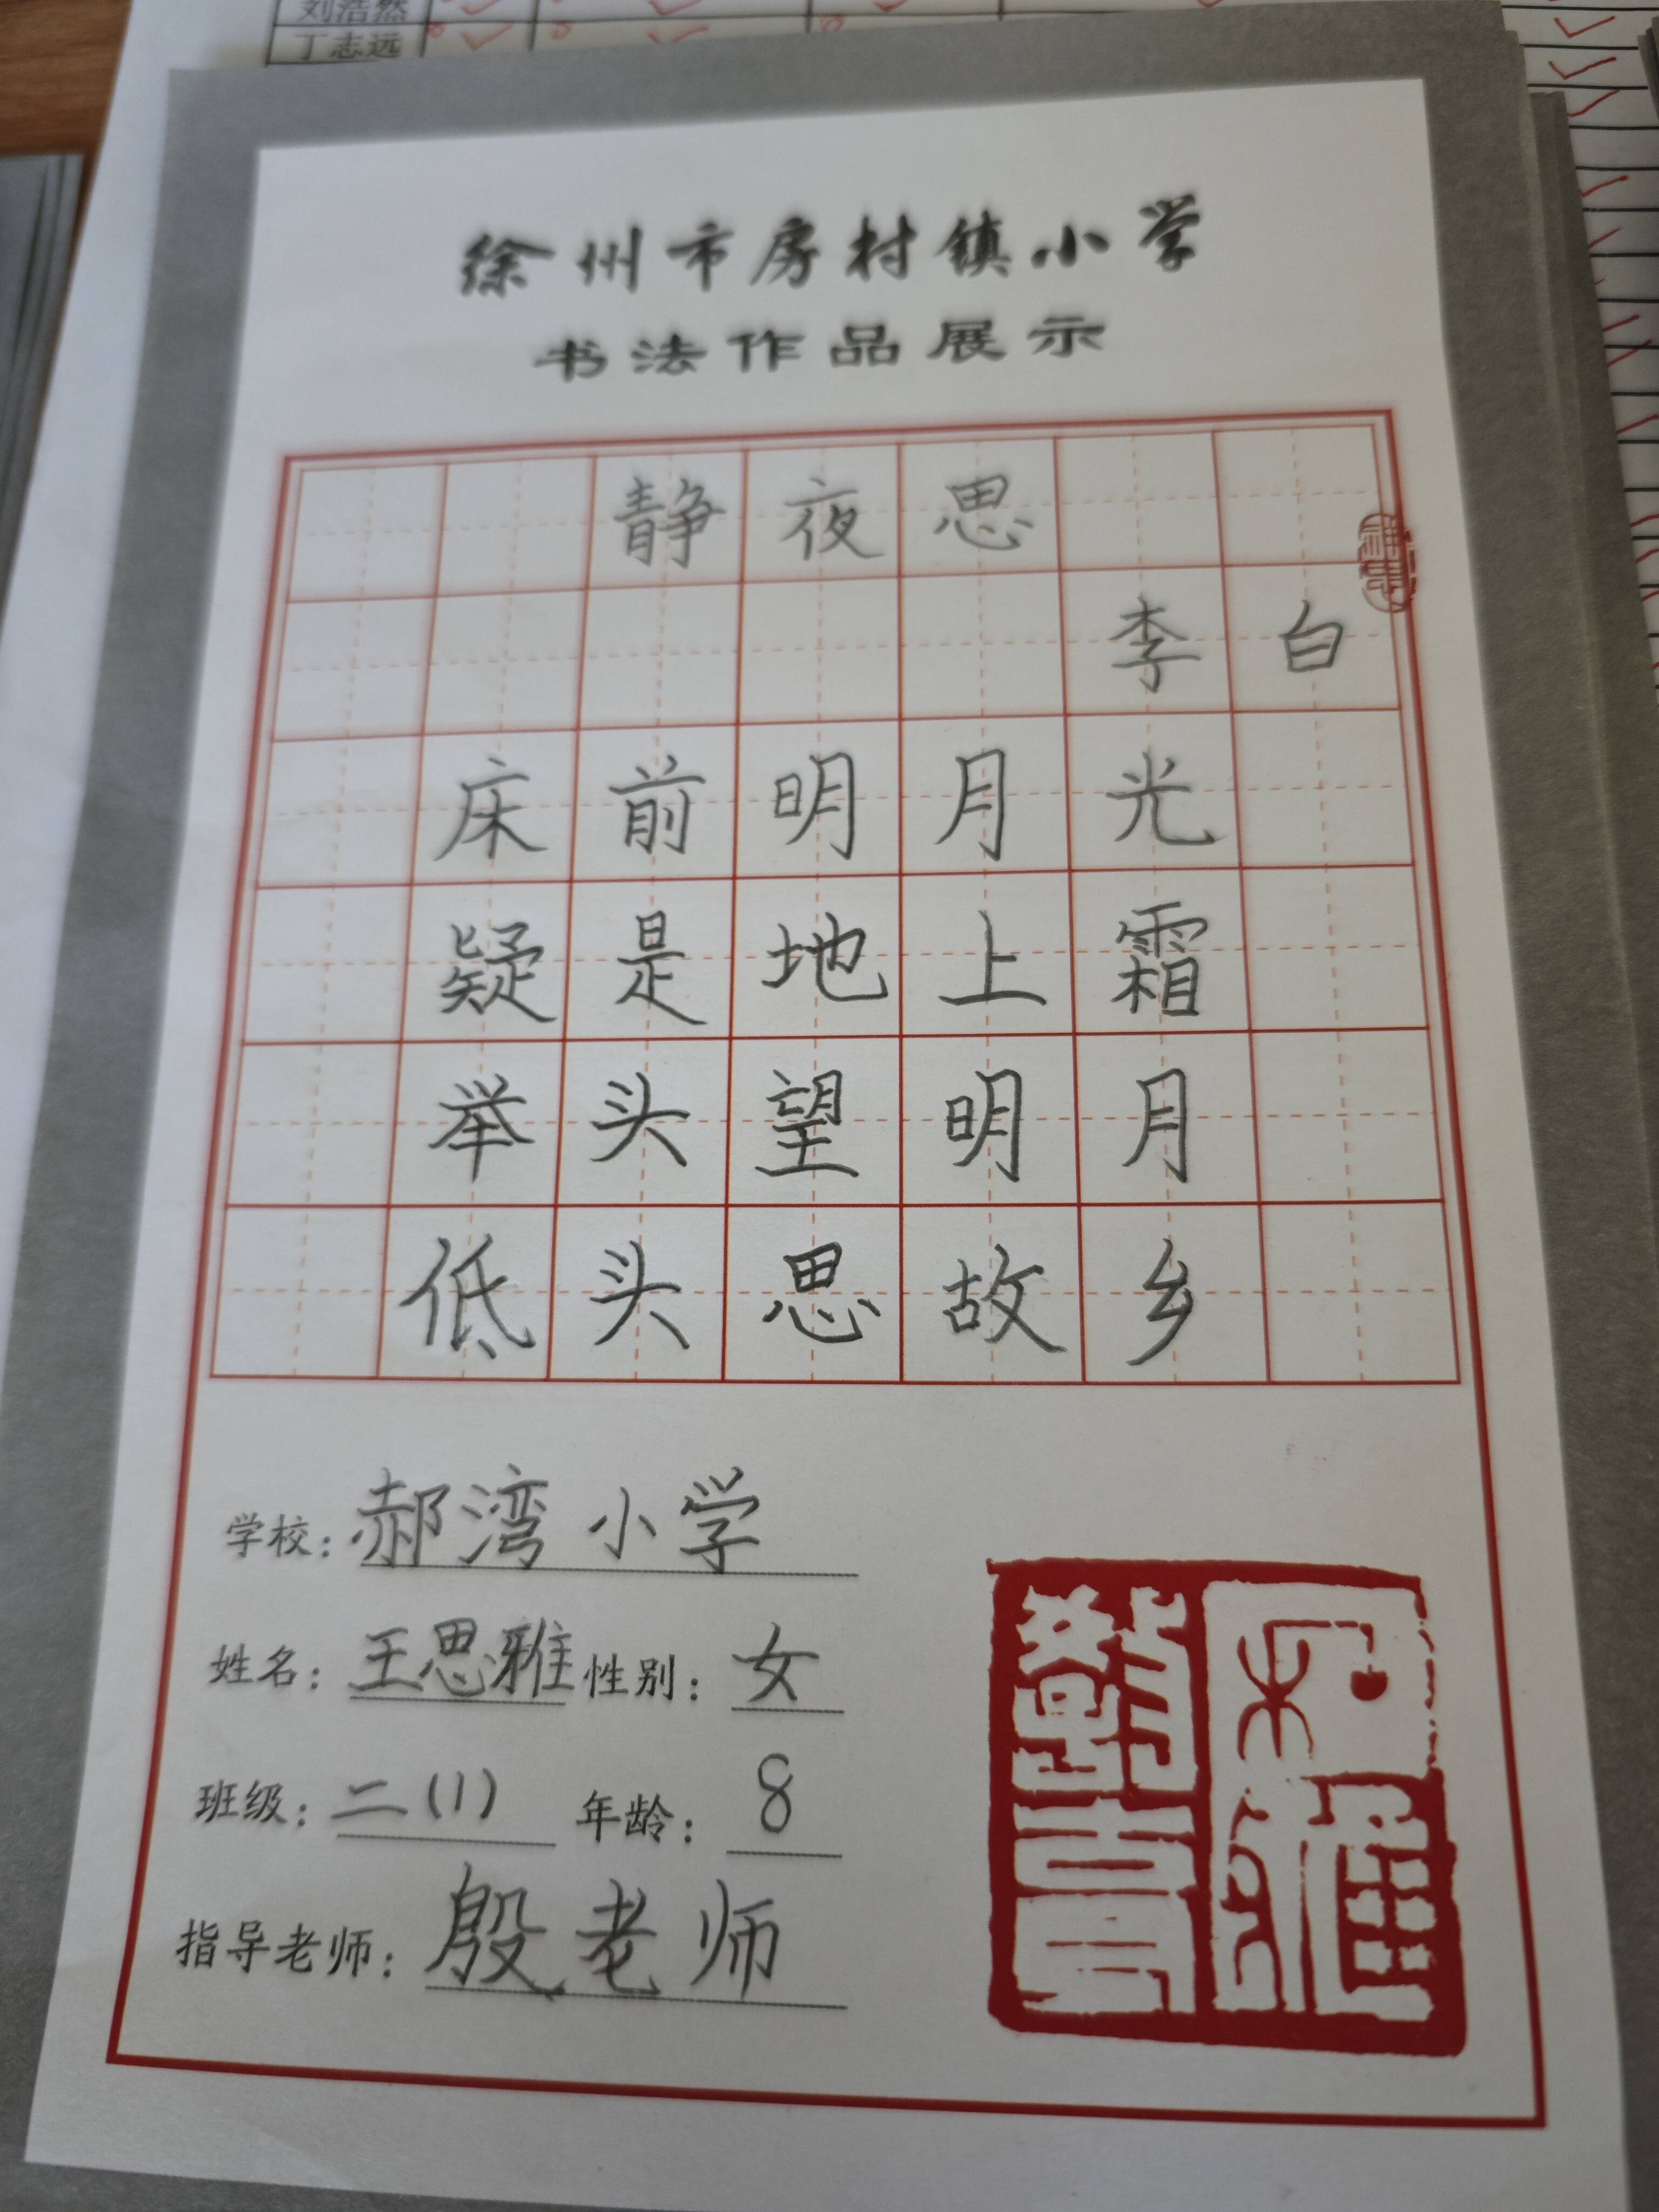 刘浩然
丁志远
徐州市房村镇小学
书法作品展示
静夜思
李白
床前明月光
疑是地上霜
举头望明月
低头思故乡
学校：郝湾小学
姓名：王思雅 性别：女
班级：二(1) 年龄：8
指导老师：殷老师